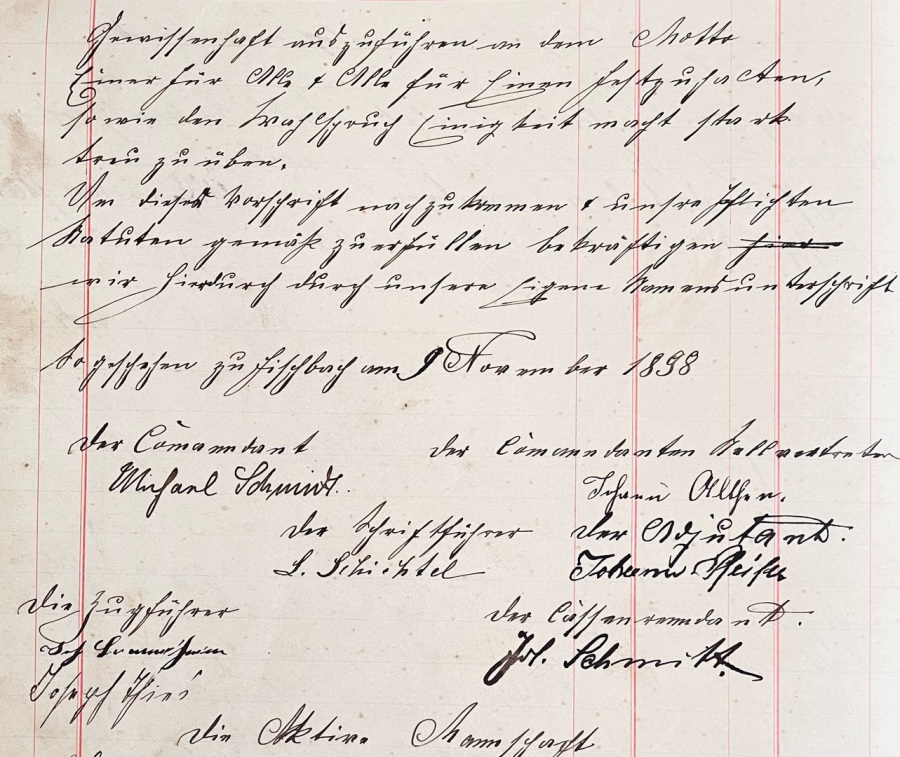 Gewissenhaft auszuführen an dem Motto
Einer für Alle & Alle für Einen festzuhalten,
sowie den Wahlspruch Einigkeit macht stark
treu zu üben.
Um dieses Vorschrift nachzukommen & unsre Pflichten
Statuten gemäß zu erfüllen bekräftigen hier
wir hierdurch durch unsere Eigene Namensunterschrift
So geschehen zu Fischbach am 9 November 1898
Der Comanndant
Michael Schmidt.
Der Comanndanten Stellvertreter
Johann
Der Schriftführer
L. Schichtel
Der Adjutant.
Johann Pfeifer
Die Zugführer
Joseph Thies
Der Cassenrenndant.
Joh. Schmitt.
Die Aktive Mannschaft